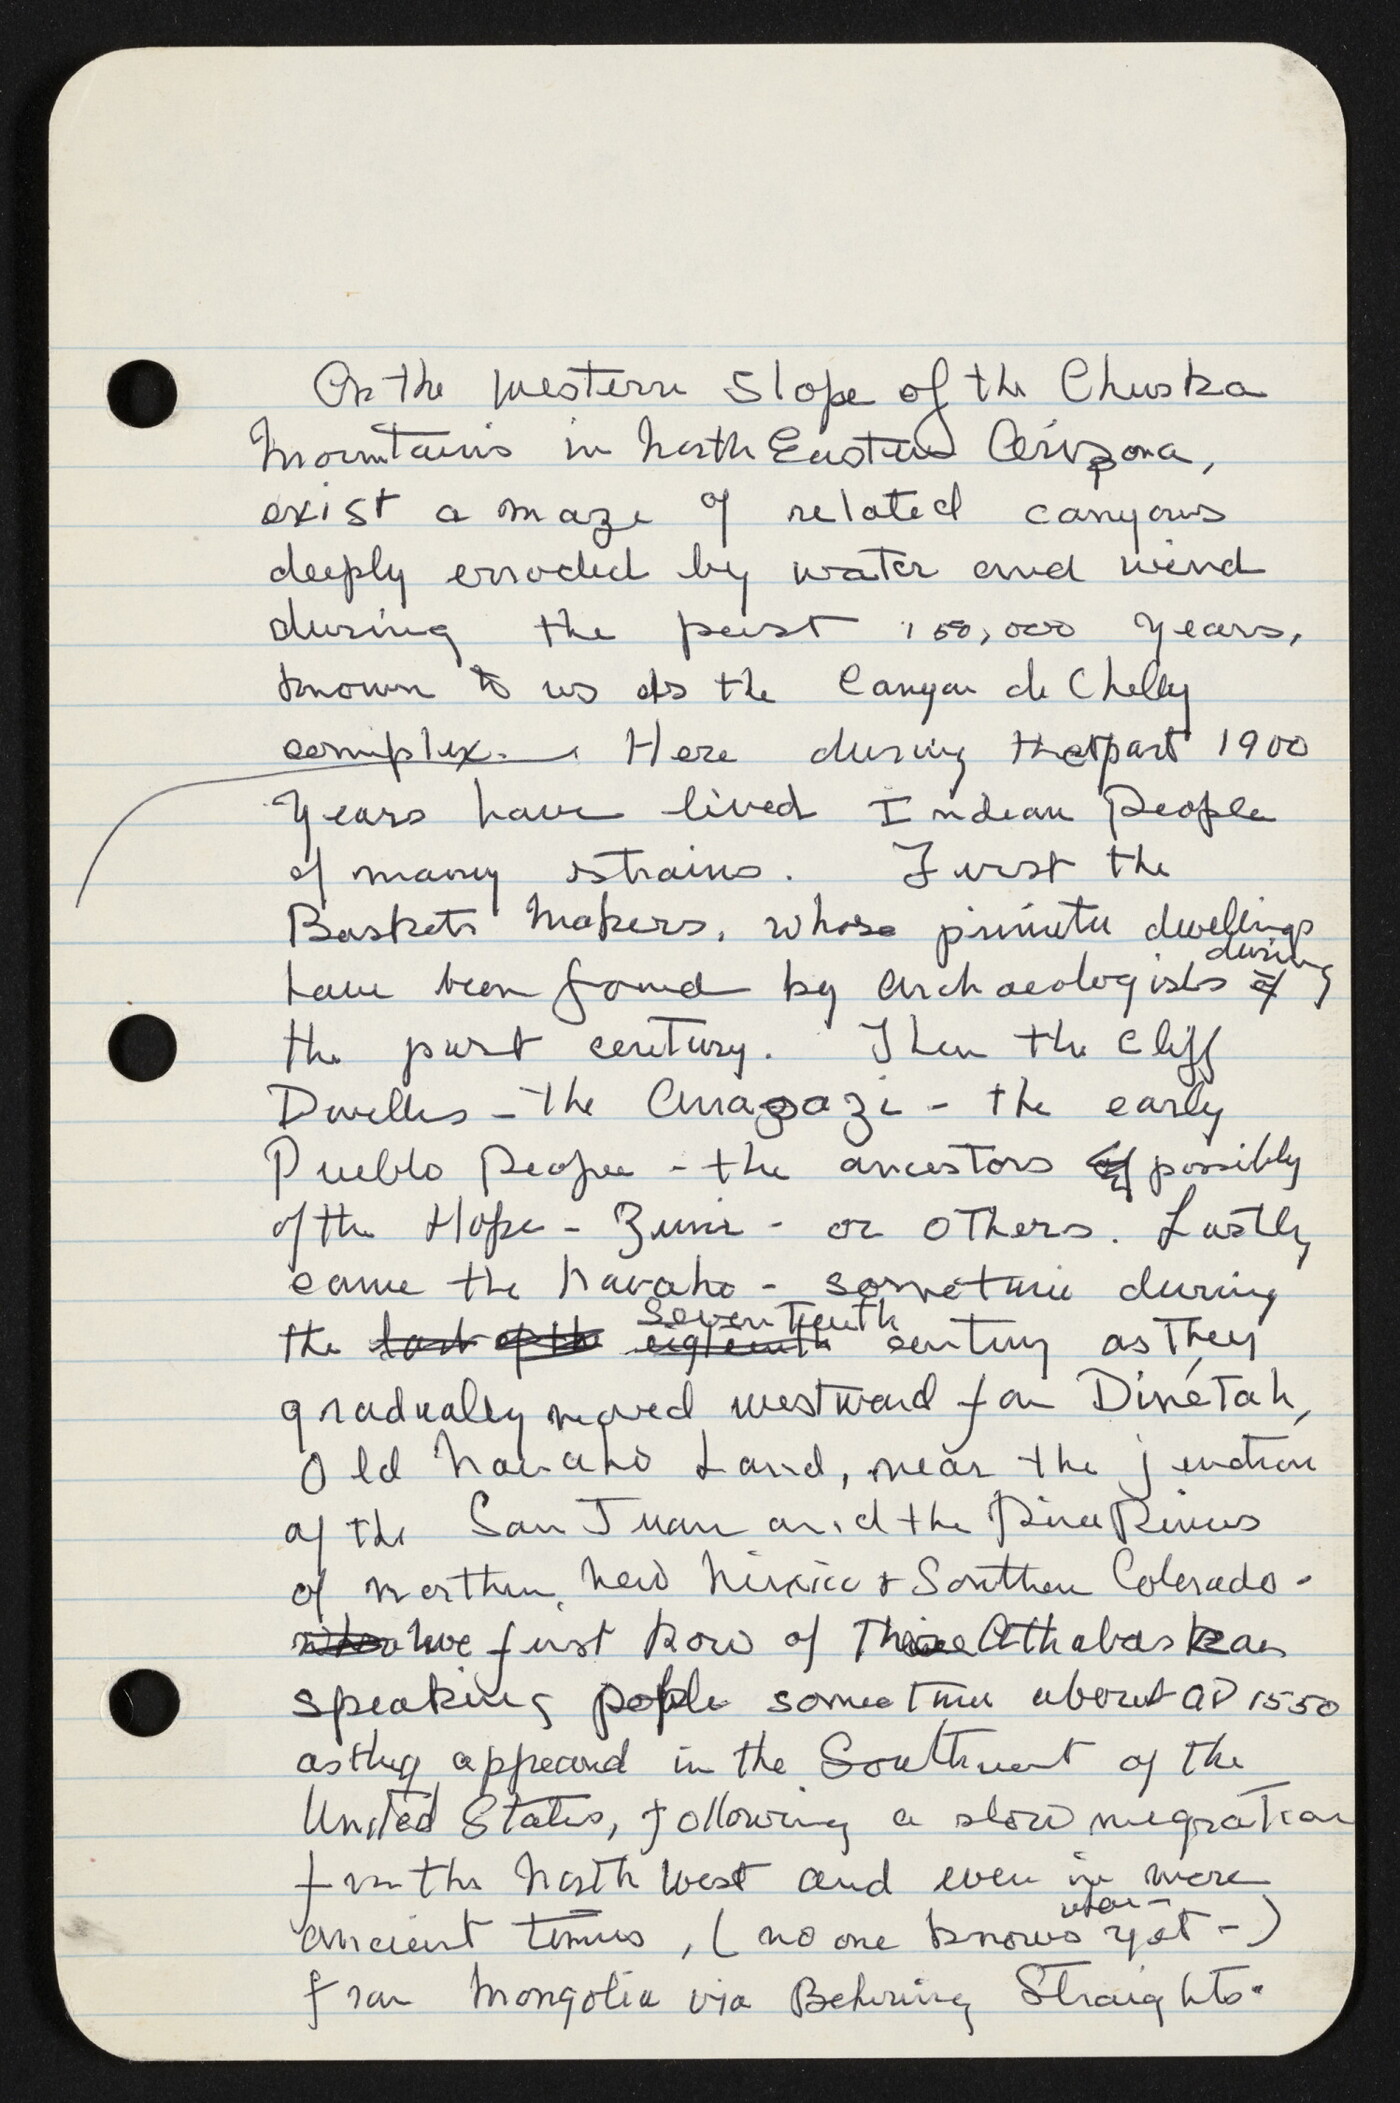 On the western slope of the Chuska
Mountains in North Eastern Arizona,
exist a maze of related canyons
deeply erroded by water and wind
during the past 150,000 years,
known to us as the Canyon de Chelly
complex. Here during the past 1900
years have lived Indian People
of many strains. First the
Baskets Makers, whose primitive dwellings
have been found by archaeologists during
the past century. Then the Cliff
Dwellers - the Anasazi - the early
Pueblo People - the ancestors possibly
of the Hope - Zuni - or others. Lastly
came the Navaho - sometime during
the last of the eighteenth seventeenth century as they
gradualey moved westward from Dinétah,
Old Navaho Land, near the junction
of the San Juan and the Pine Rivers
of northern New Mexico & Southern Colorado -
we first know of These Athabaskan
speaking people sometime about AD 1550
as they appeared in the Southwest of the
United States, following a slow migration
from the North West and even in more
ancient times, (no one knows when - yet -)
from Mongolia via Behring Straights.